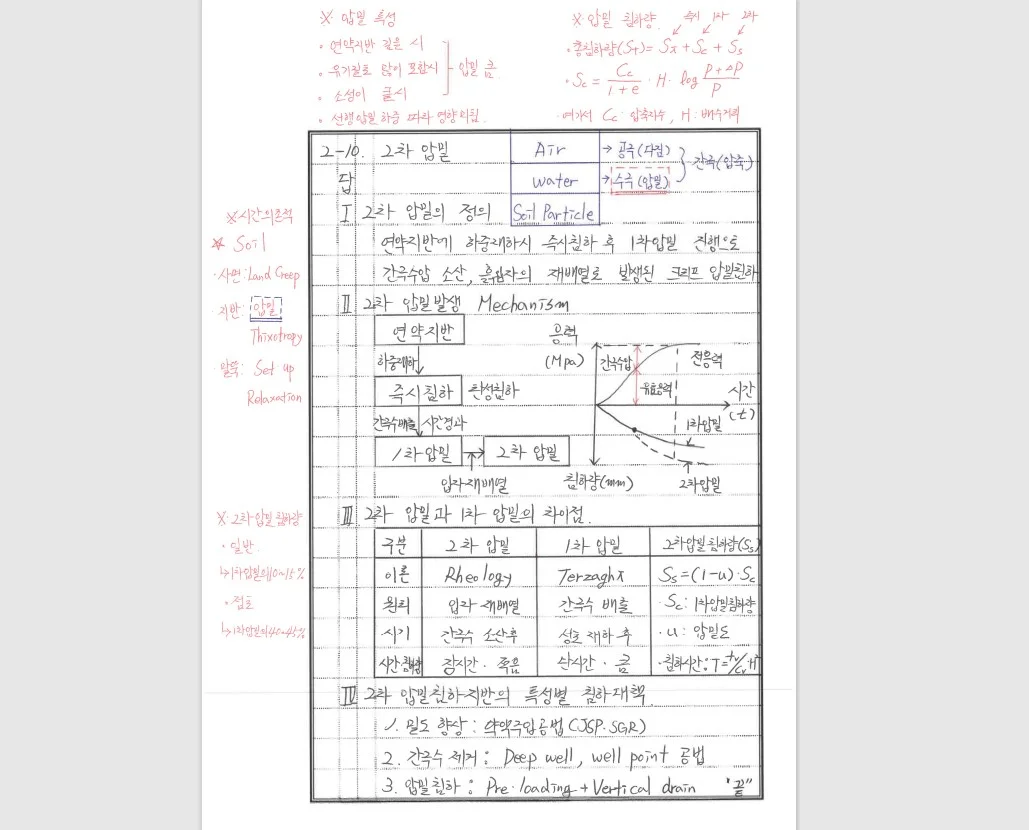 ※ 압밀 특성
• 연약지반 깊을 시
• 유기질토 많이 포함시
• 소성이 클시
압밀 큼
• 선행압밀 하중 따라 영향 미침.
※ 압밀 침하량.
즉시 1차 2차
• 총침하량(ST) = Si + Sc + Ss
• Sc = Cc / 1+e · H · log P+ΔP / P
· 여기서 Cc : 압축지수, H : 배수거리
2-10. 2차 압밀
Air → 공극(다짐)
water → 수극(압밀)
간극(압축)
Soil Particle
답
Ⅰ 2차 압밀의 정의
연약지반에 하중재하시 즉시침하 후 1차압밀 진행으로
간극수압 소산, 흙입자의 재배열로 발생된 크리프 압밀침하
※시간의존적
* Soil
· 사면 : Land Creep
· 지반 : 압밀
Thixotropy
말뚝 : Set up
Relaxation
Ⅱ 2차 압밀발생 Mechanism
연약지반
하중재하
즉시침하 탄성침하
간극수배출 시간경과
1차압밀 → 2차 압밀
입자재배열
응력
(Mpa)
간극수압
전응력
유효응력
시간
(t)
1차압밀
2차압밀
침하량(mm)
Ⅲ 2차 압밀과 1차 압밀의 차이점.
구분 2차 압밀 1차 압밀 2차압밀침하량(Ss)
이론 Rheology Terzaghi Ss = (1-u)·Sc
원리 입자 재배열 간극수 배출 · Sc : 1차압밀침하량
시기 간극수 소산후 성토 재하 후 · u : 압밀도
시간·침하량 장시간 · 적음 단시간 · 큼 · 침하시간 : T=
※ 2차압밀 침하량
• 일반.
↳ 1차압밀의 10~15%
• 점토
↳ 1차압밀의 40~45%
Ⅳ 2차 압밀침하지반의 특성별 침하대책
1. 밀도 향상 : 약액주입공법(CJSP·SGR)
2. 간극수 제거 : Deep well, well point 공법
3. 압밀침하 : Pre·loading + Vertical drain "끝"